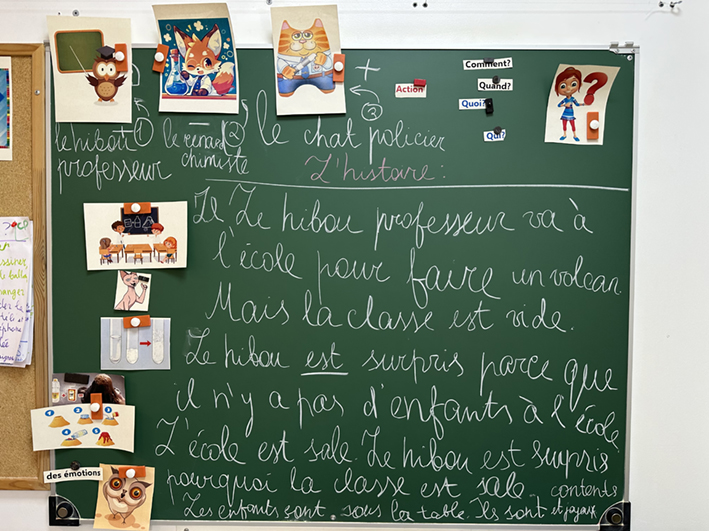 Comment?
Action
Quand?
Quoi?
Qui?
+
le hibou ①
professeur
le renard ②
chimiste
le chat policier
③
L'histoire:
Le Le hibou professeur va à
l'école pour faire un volcan.
Mais la classe est vide.
Le hibou est surpris parce que
il n'y a pas d'enfants à l'école
L'école est sale. Le hibou est surpris
pourquoi la classe est sale. contents
Les enfants sont sous la table. Ils sont et joyeux
des émotions